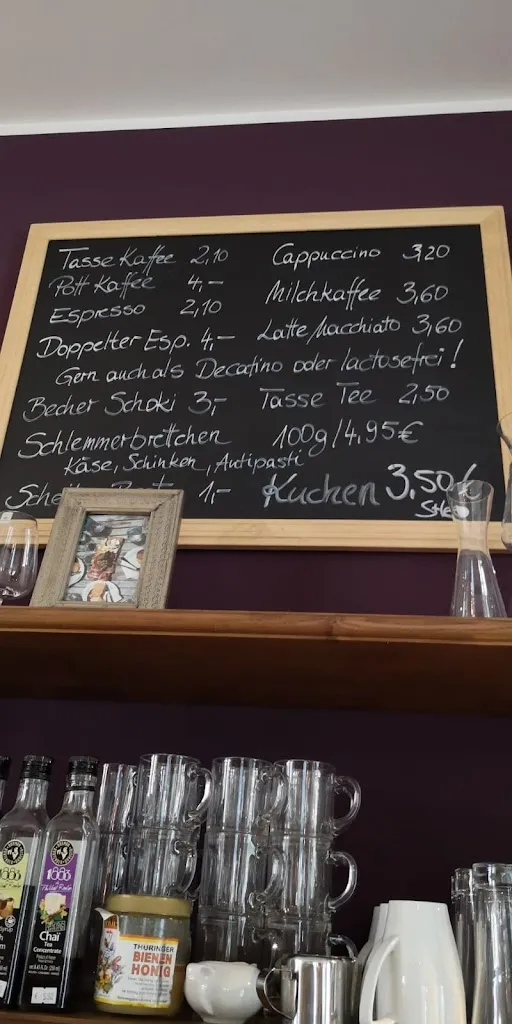 Tasse Kaffee 2,10 Cappuccino 3,20
Pott Kaffee 4,- Milchkaffee 3,60
Espresso 2,10
Doppelter Esp. 4,- Latte Macchiato 3,60
Gern auch als Decafino oder lactosefrei!
Becher Schoki 3,- Tasse Tee 2,50
Schlemmerbrettchen 100g/4,95€
Käse, Schinken, Antipasti
1,- Kuchen 3,50€
1883
Chaï
Tea
Concentrate
THÜRINGER
BIENEN
HONIG